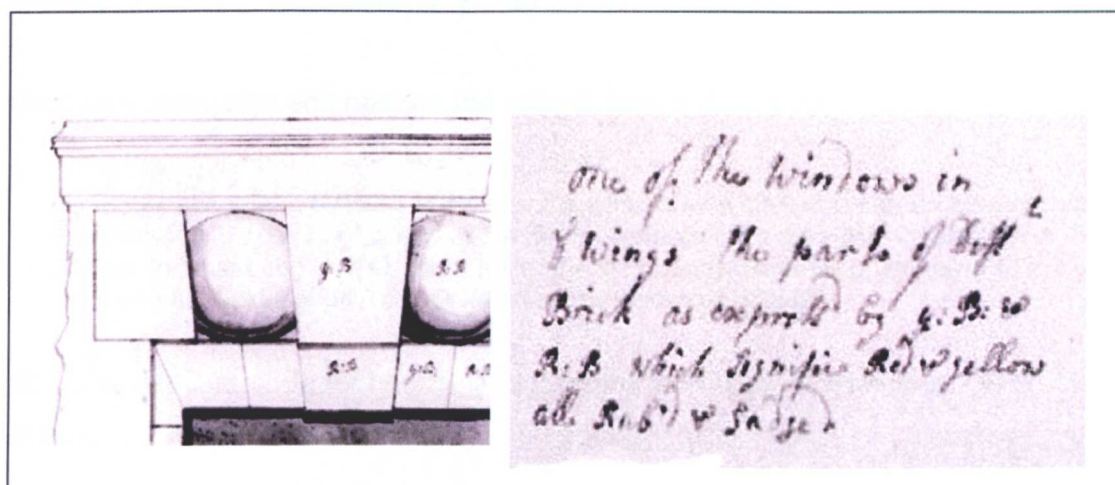 y:B
R:B
R:B
y:B
R:B
one of the windows in
y wings the parts of
Brick as express'd by y:B: &
R:B which signifie Red & yellow
all Rub'd & Gadged